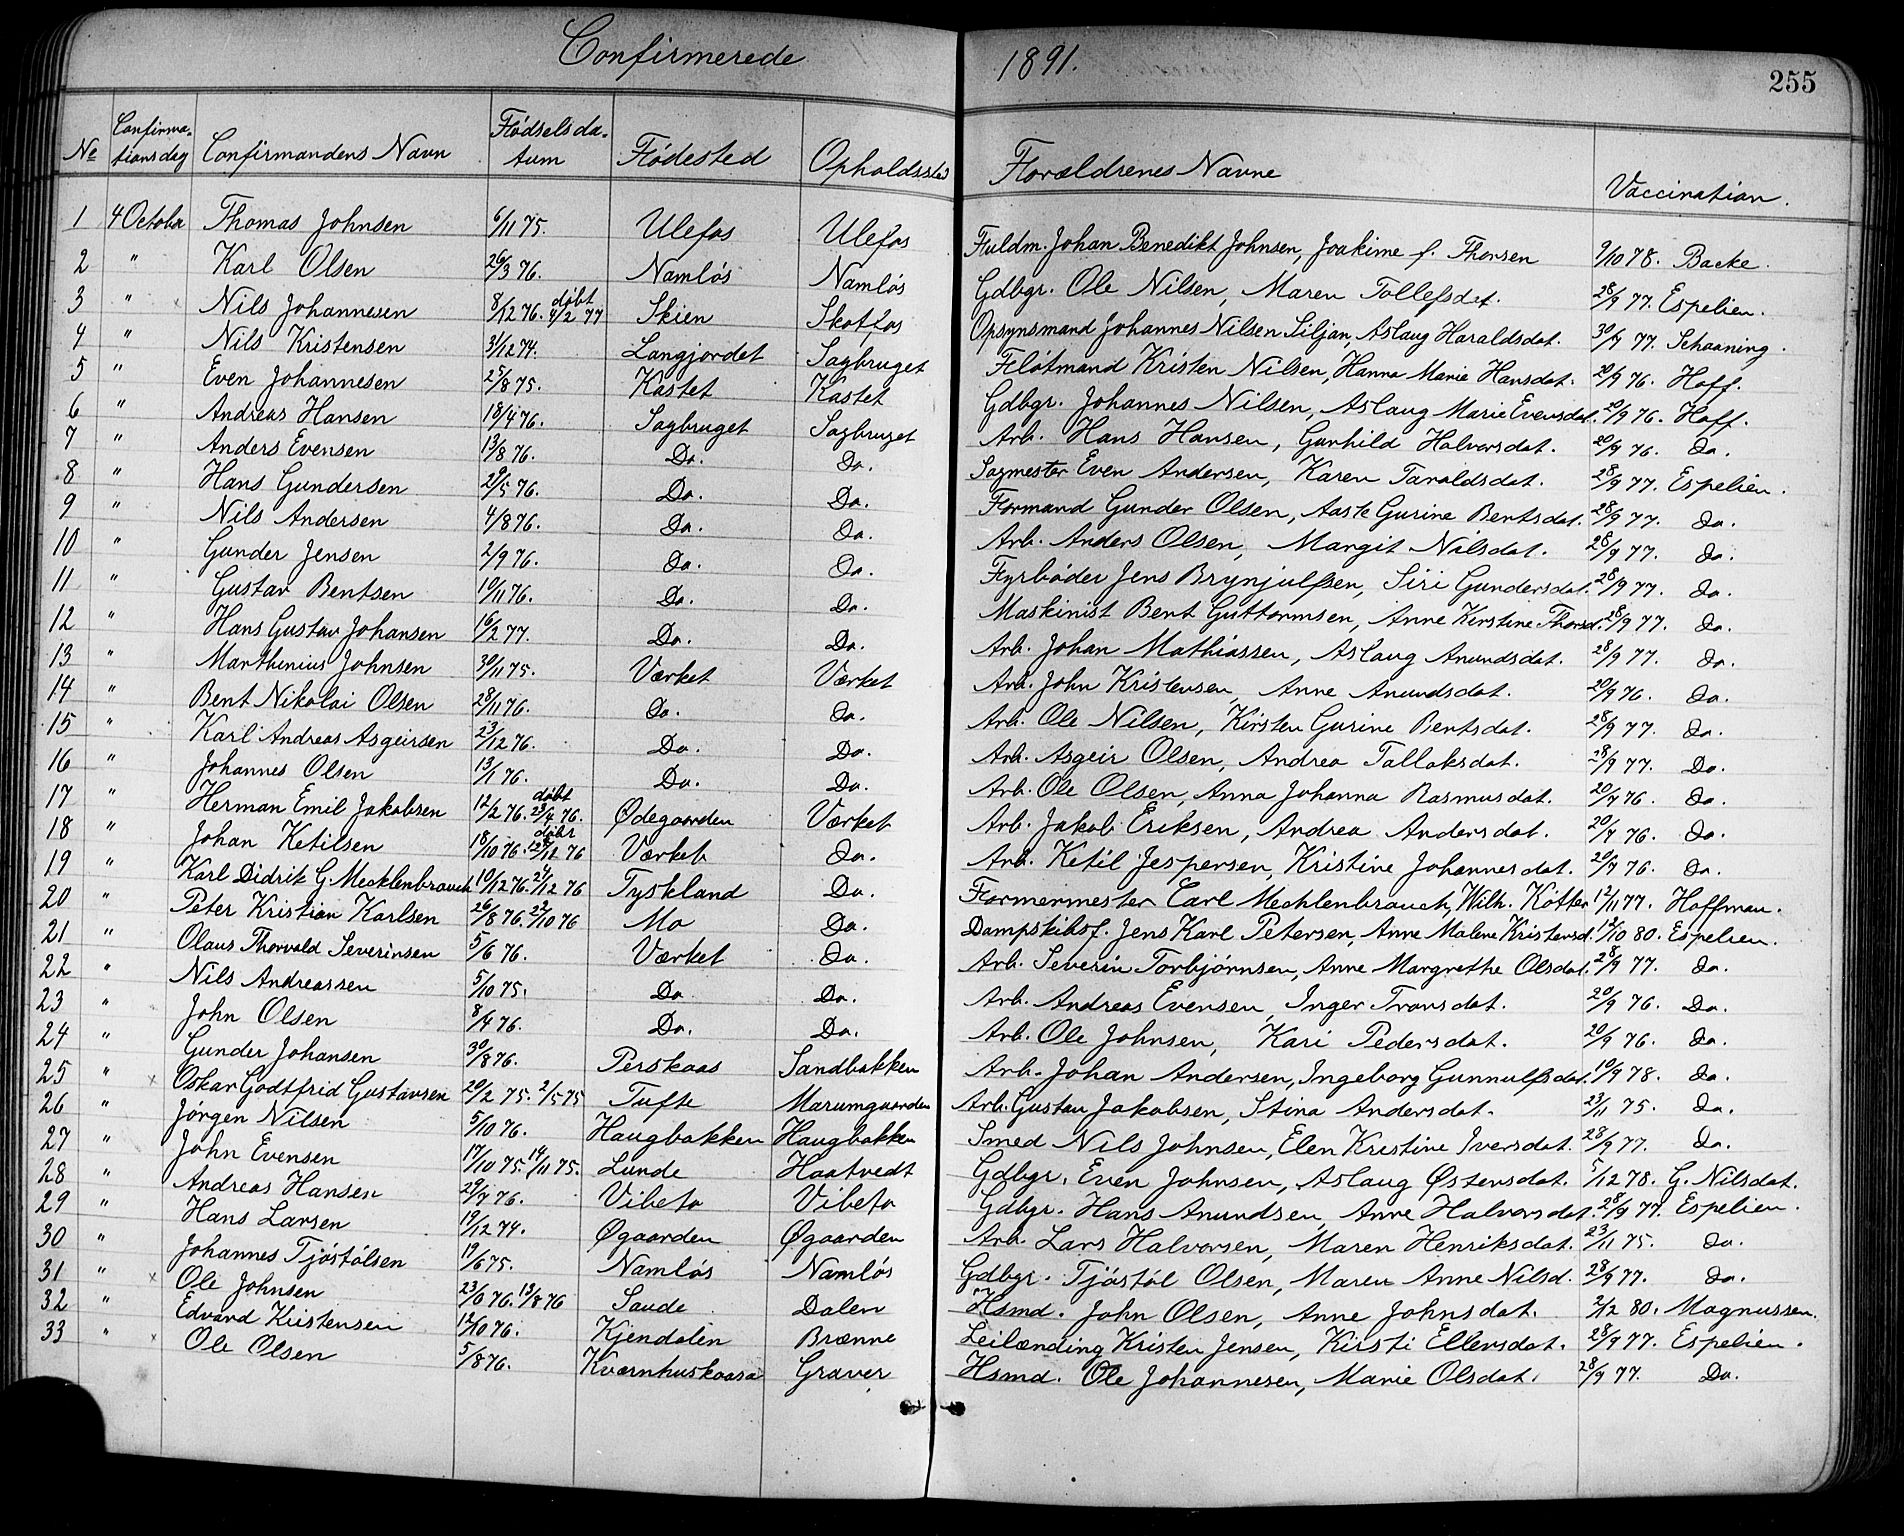 Confirmerede 1891. 255
No Confirma-tionsdag Confirmandens Navn Fødselsda-tum Fødested Opholdssted Forældrenes Navne Vaccination.
1 4 October Thomas Johnsen 6/11 75. Ulefos Ulefos Fuldm. Johan Benedikt Johnsen, Joakime f. Thorsen 9/10 78. Backe.
2 " Karl Olsen 26/3 76. Namløs Namløs Gdbgr. Ole Nilsen, Maren Tollefsdet. 28/9 77. Espelien.
3 " Nils Johannesen 8/12 76. døbt 4/2 77 Skien Skotfos Opsynsmand Johannes Nilsen Siljan, Aslaug Haraldsdat. 30/7 77. Schaaning.
4 " Nils Kristensen 31/12 74. Langjordet Sagbruget Fløtmand Kristen Nilsen, Hanna Marie Hansdat. 20/9 76. Hoff.
5 " Even Johannesen 25/8 75. Kastet Kastet Gdbgr. Johannes Nilsen, Aslaug Marie Evensdat. 20/9 76. Hoff.
6 " Andreas Hansen 18/4 76. Sagbruget Sagbruget Arb. Hans Hansen, Gunhild Halvorsdat. 20/9 76. Do.
7 " Anders Evensen 13/8 76. Do. Do. Sagmester Even Andersen, Karen Taraldsdat. 28/9 77. Espelien.
8 " Hans Gundersen 29/5 76. Do. Do. Formand Gunder Olsen, Aaste Gurine Bentsdat. 28/9 77. Do.
9 " Nils Andersen 4/8 76. Do. Do. Arb. Anders Olsen, Margit Nilsdat. 28/9 77. Do.
10 " Gunder Jensen 2/9 76. Do. Do. Fyrbøder Jens Brynjulfsen, Siri Gundersdat. 28/9 77. Do.
11 " Gustav Bentsen 19/11 76. Do. Do. Maskinist Bent Guttormsen, Anne Kirstine Thorsd. 28/9 77. Do.
12 " Hans Gustav Johansen 16/2 77. Do. Do. Arb. Johan Mathiassen, Aslaug Anundsdat. 28/9 77. Do.
13 " Marthinius Johnsen 30/11 75. Værket Værket Arb. John Kristensen, Anne Anundsdat. 20/9 76. Do.
14 " Bent Nikolai Olsen 28/11 76. Do. Do. Arb. Ole Nilsen, Kirsten Gurine Bentsdat. 28/9 77. Do.
15 " Karl Andreas Asgeirsen 23/12 76. Do. Do. Arb. Asgeir Olsen, Andrea Tallaksdat. 28/9 77. Do.
16 " Johannes Olsen 13/1 76. Do. Do. Arb. Ole Olsen, Anna Johanna Rasmusdat. 20/9 76. Do.
17 " Herman Emil Jakobsen 12/2 76. døbt 23/4 76. Ødegaarden Værket Arb. Jakob Eriksen, Andrea Andersdat. 20/9 76. Do.
18 " Johan Ketilsen 18/10 76. døbt 12/12 76 Værket Do. Arb. Ketil Jespersen, Kristine Johannesdat. 20/9 76. Do.
19 " Karl Didrik G. Mecklenbrauck 10/12 76. 27/12 76 Tyskland Do. Formermester Carl Mechlenbrauch, Wilh. Kötter 12/11 77. Hoffman.
20 " Peter Kristian Karlsen 26/8 76. 22/10 76 Mo Do. Dampskibsf. Jens Karl Petersen, Anne Malene Kristensd. 12/10 80. Espelien.
21 " Olaus Thorvald Severinsen 5/6 76. Værket Do. Arb. Severin Torbjørnsen, Anne Margrethe Olsdat. 28/9 77. Do.
22 " Nils Andreassen 5/10 75. Do Do. Arb. Andreas Evensen, Inger Transdat. 20/9 76. Do.
23 " John Olsen 8/4 76. Do. Do. Arb. Ole Johnsen, Kari Pedersdat. 20/9 76. Do.
24 " Gunder Johansen 30/8 76. Perskaas Sandbakken Arb. Johan Andersen, Ingeborg Gunnulfsdat. 19/9 78. Do.
25 " x Oskar Godtfrid Gustavsen 20/2 75. 2/5 75 Tufte Marumgaarden Arb. Gustav Jakobsen, Stina Andersdat. 23/11 75. Do.
26 " Jørgen Nilsen 5/10 76. Haugbakken Haugbakken Smed Nils Johnsen, Elen Kristine Iversdat. 28/9 77. Do.
27 " John Evensen 17/10 75. 14/11 75. Lunde Haatvedt Gdbgr. Even Johnsen, Aslaug Østensdat. 5/12 78. G. Nilsdat.
28 " Andreas Hansen 29/7 76. Vibeto Vibeto Gdbgr. Hans Anundsen, Anne Halvorsdat. 28/9 77. Espelien.
29 " Hans Larsen 19/12 74. Øgaarden Øgaarden Arb. Lars Halvorsen, Maren Henriksdat. 23/11 75. Do.
30 " Johannes Tjøstølsen 19/6 75. Namløs Namløs Gdbgr. Tjøstøl Olsen, Maren Anne Nilsd. 28/9 77. Do.
31 " x Ole Johnsen 23/6 76. 13/8 76 Saude Dalen Hsmd. John Olsen, Anne Johnsdat. 2/12 80. Magnussen.
32 " Edvard Kristensen 12/10 76. Kjendalen Brænne Leilænding Kristen Jensen, Kirsti Ellevsdat. 28/9 77. Espelien.
33 " x Ole Olsen 5/8 76. Kværnhuskaasa Graver Hsmd. Ole Johannesen, Marie Olsdat. 28/9 77. Do.